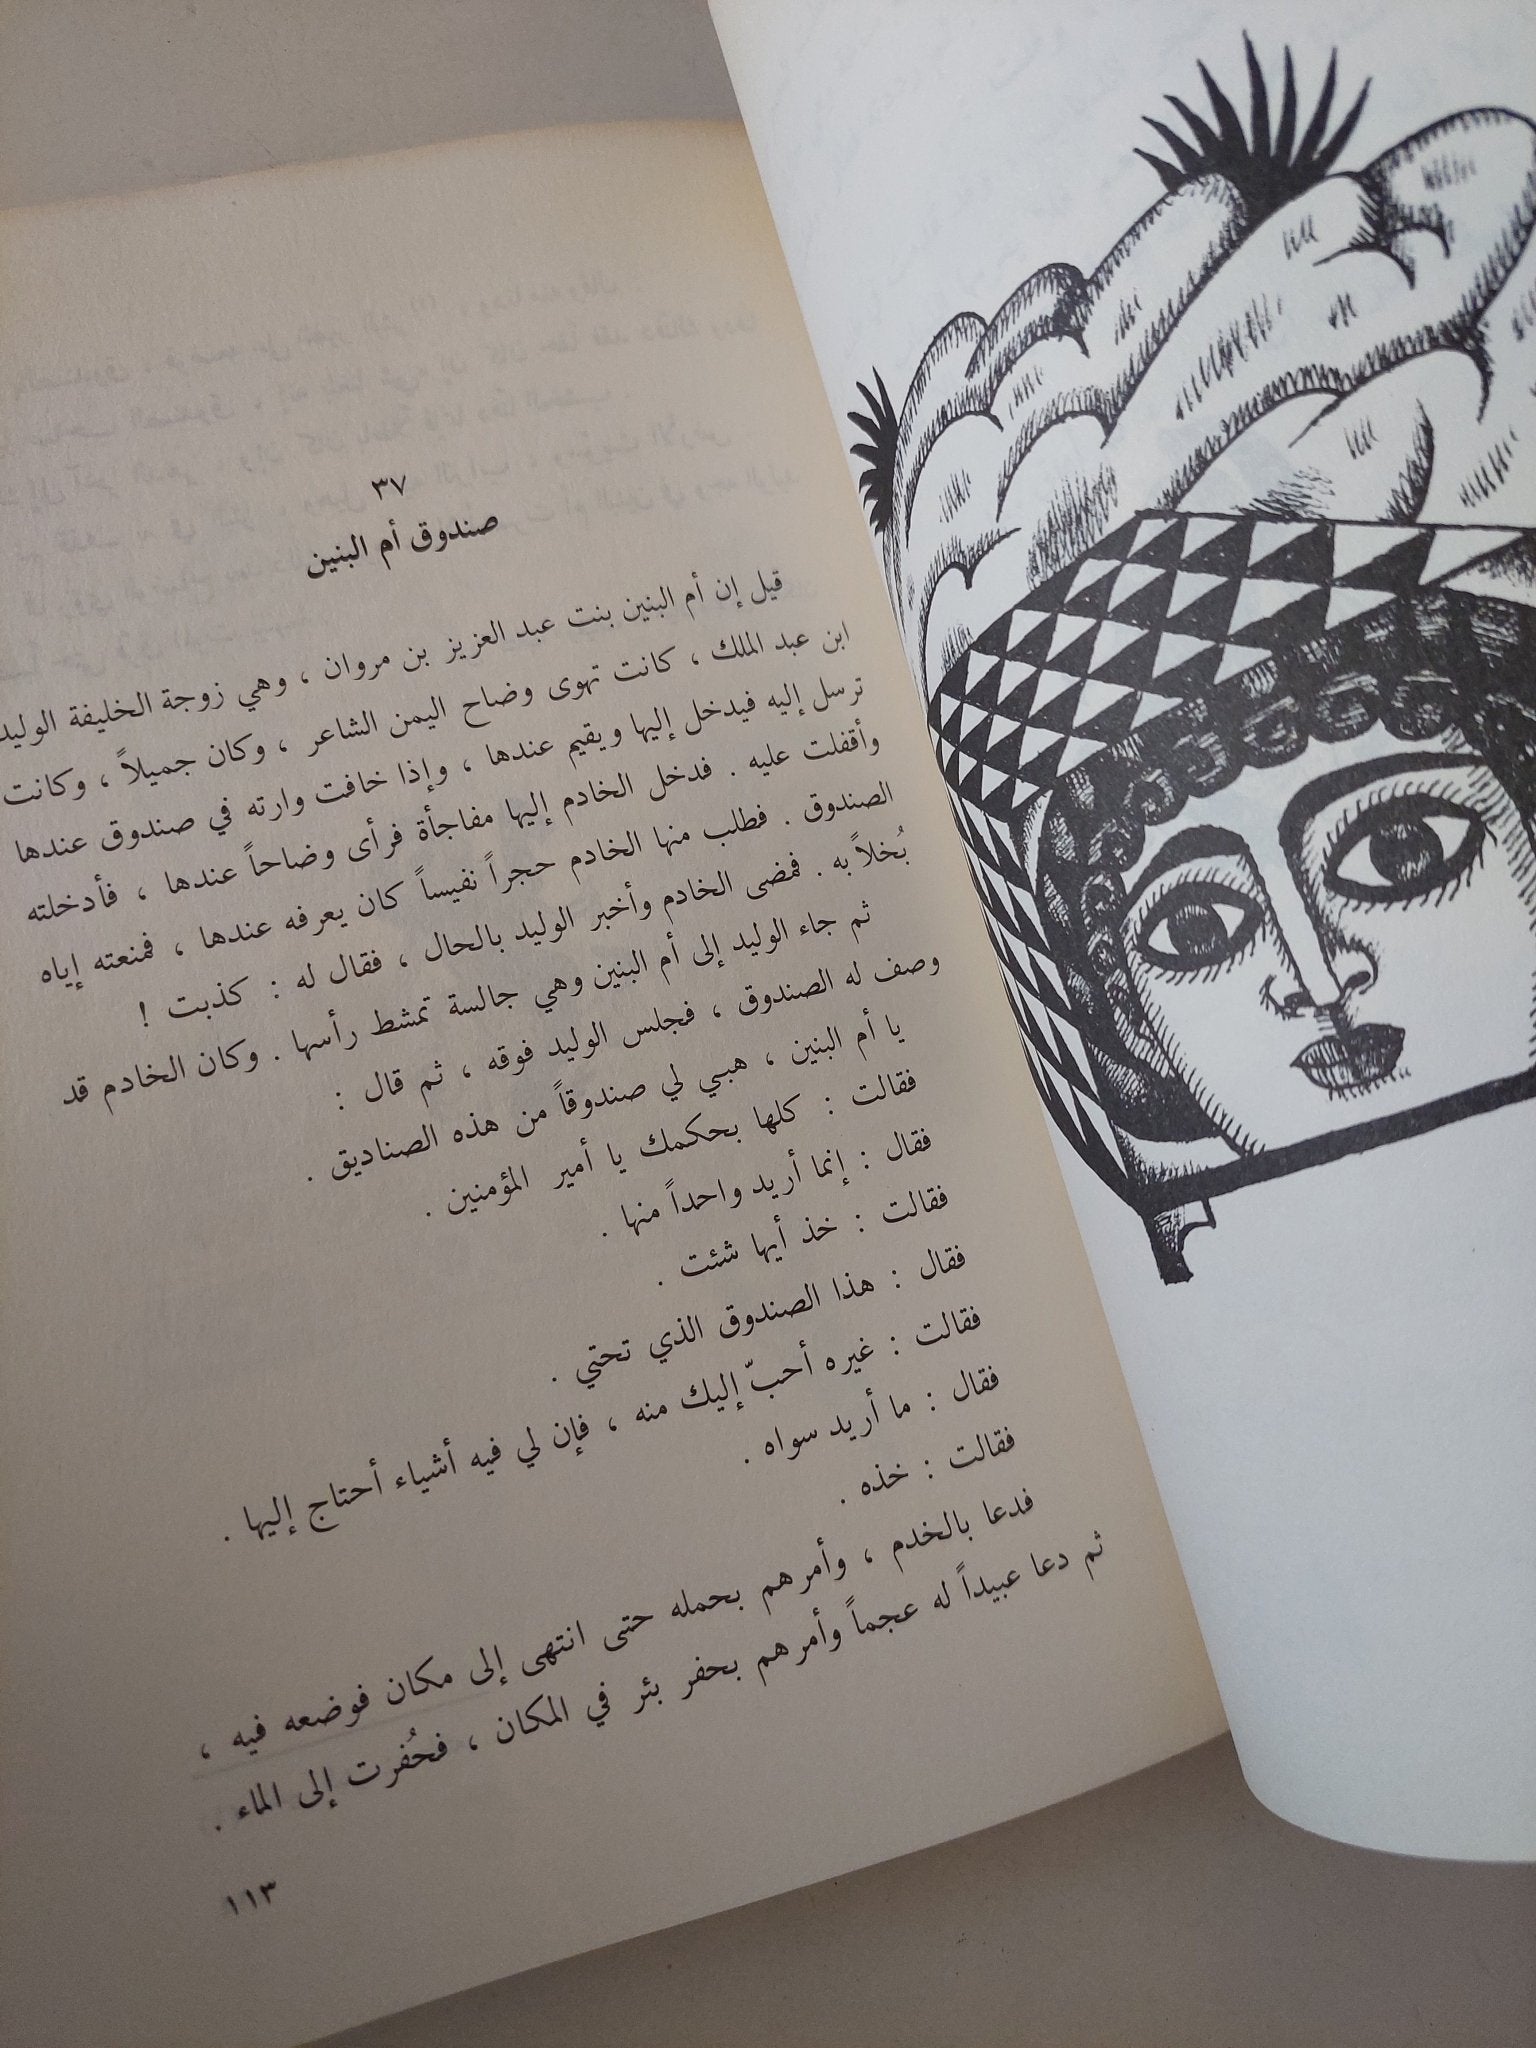 ٣٧
صندوق أم البنين
قيل إن أم البنين بنت عبد العزيز بن مروان ، وهي زوجة الخليفة الوليد
ابن عبد الملك ، كانت تهوى وضاح اليمن الشاعر ، وكان جميلاً ، وكانت
ترسل إليه فيدخل إليها ويقيم عندها ، وإذا خافت وارته في صندوق عندها
وأقفلت عليه . فدخل الخادم إليها مفاجأة فرأى وضاحاً عندها ، فأدخلته
الصندوق . فطلب منها الخادم حجراً نفيساً كان يعرفه عندها ، فمنعته إياه
بُخلاً به . فمضى الخادم وأخبر الوليد بالحال ، فقال له : كذبت !
ثم جاء الوليد إلى أم البنين وهي جالسة تمشط رأسها . وكان الخادم قد
وصف له الصندوق ، فجلس الوليد فوقه ، ثم قال :
يا أم البنين ، هبي لي صندوقاً من هذه الصناديق .
فقالت : كلها بحكمك يا أمير المؤمنين .
فقال : إنما أريد واحداً منها .
فقالت : خذ أيها شئت .
فقال : هذا الصندوق الذي تحتي .
فقالت : غيره أحبّ إليك منه ، فإن لي فيه أشياء أحتاج إليها .
فقال : ما أريد سواه .
فقالت : خذه .
فدعا بالخدم ، وأمرهم بحمله حتى انتهى إلى مكان فوضعه فيه ،
ثم دعا عبيداً له عجماً وأمرهم بحفر بئر في المكان ، فحُفرت إلى الماء .
١١٣